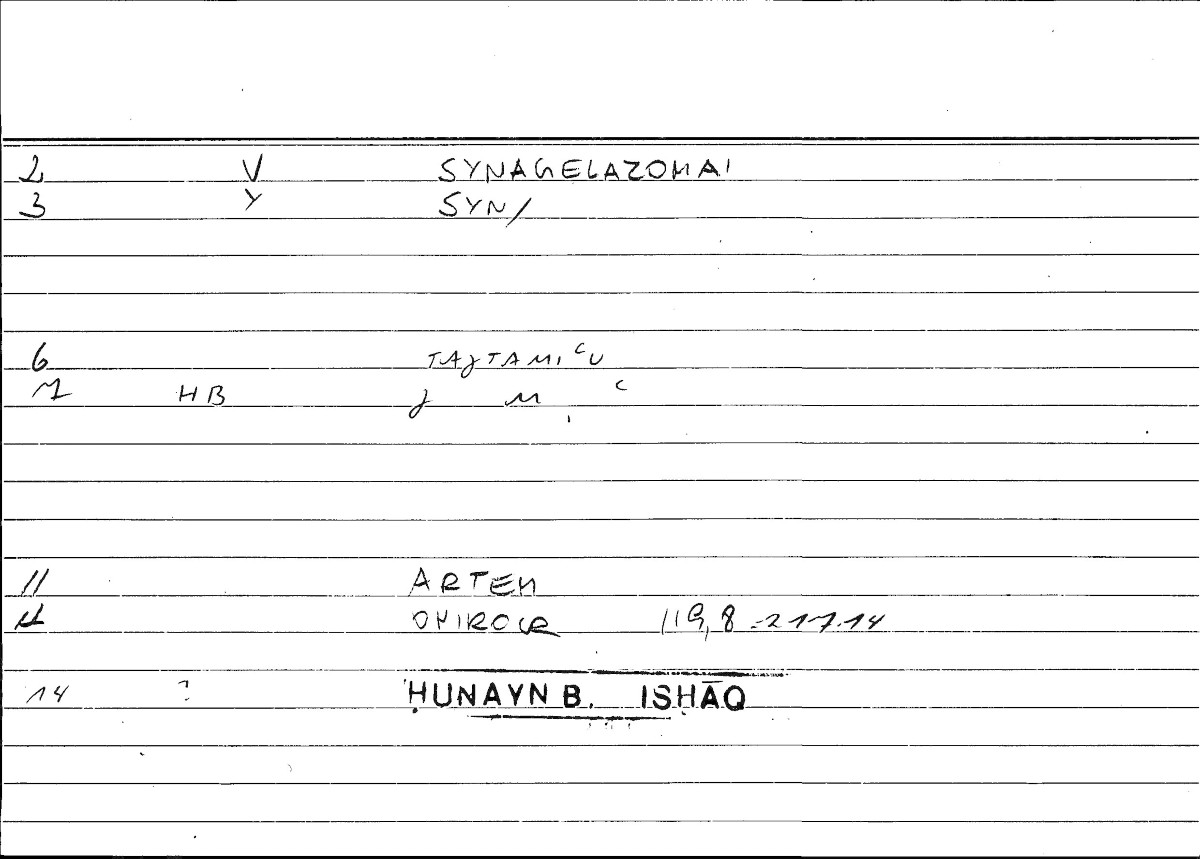 2 V SYNAGELAZOMAI
3 Y SYN/
6 TAJTAMIʿU
HB J M ʿ
11 ARTEM
ONIROCR 119,8 = 217.14
14 ? ḤUNAYN B. ISḤĀQ